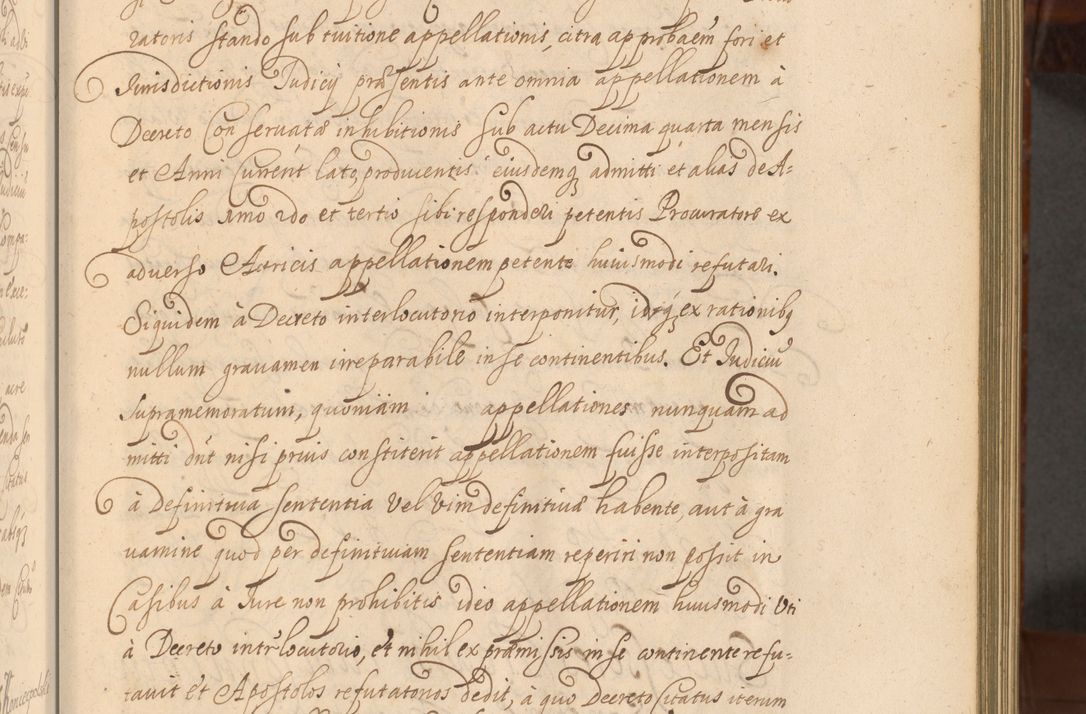 ratoris stando sub tuitione appellationis, citra approbaem̃ fori et
Jurisdictionis Judicÿ præsentis ante omnia appellationem à
Decreto Conservatæ inhibitionis sub actu Decima quarta mensis
et Anni Currēnt lato, producentis eiusdemq̃ admitti et alias de A=
postolis 1mo 2do et tertio sibi responderi petentis Procuratore ex
adverso Actricis appellationem petente huiusmodi refutari.
Siquidem à Decreto interlocutorio interponitur, idq̃ ex rationibq
nullum gravamen irreparabile in se continentibus. Et Judiciū
supramemoratum, quoniam appellationes nunquam ad
mitti dn̄t nisi prius constiterit appellationem fuisse interpositam
à Definitiva sententia vel vim definitivæ habente, aut à gra
vamine quod per definitivam sententiam reperiri non possit in
Casibus à Jure non prohibitis ideo appellationem huiusmodi uti
à Decreto interlocutorio, et nihil ex præmissis in se continente refu=
tavit et Apostolos refutatorios dedit, à quo Decreto Citatus iterum